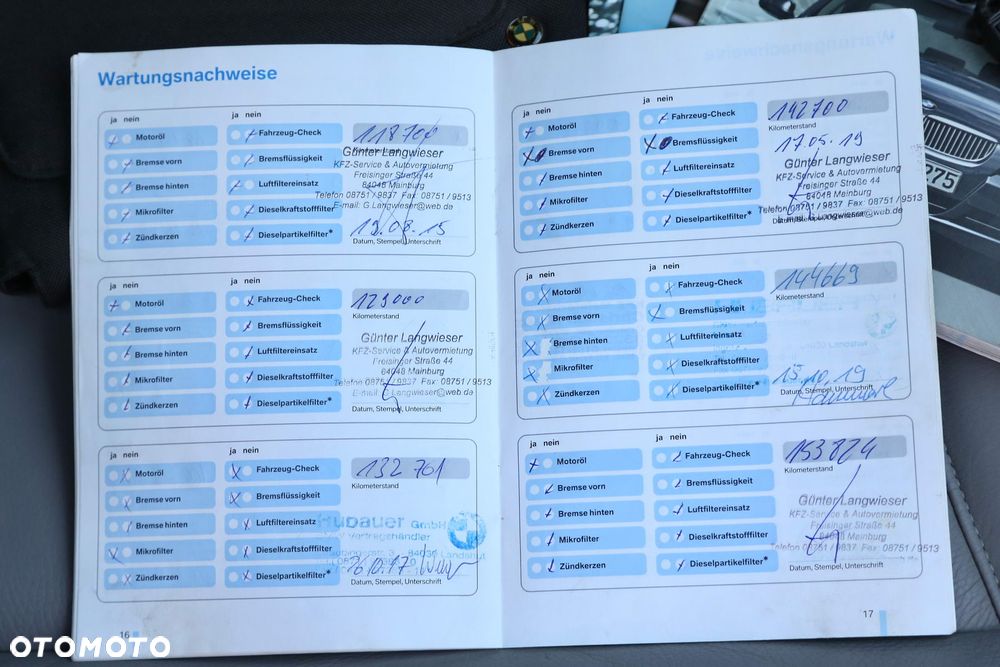 Wartungsnachweise
ja nein
ja nein
Motoröl
Fahrzeug-Check
118700
Bremse vorn
Bremsflüssigkeit
Günter Langwieser
KFZ-Service & Autovermietung
Bremse hinten
Luftfiltereinsatz
Freisinger Straße 44
84048 Mainburg
Telefon 08751 / 9837 Fax: 08751 / 9513
Mikrofilter
Dieselkraftstofffilter
E-mail: G.Langwieser@web.de
Zündkerzen
Dieselpartikelfilter*
19.08.15
Datum, Stempel, Unterschrift
ja nein
ja nein
Motoröl
Fahrzeug-Check
129000
Kilometerstand
Bremse vorn
Bremsflüssigkeit
Günter Langwieser
KFZ-Service & Autovermietung
Bremse hinten
Luftfiltereinsatz
Freisinger Straße 44
84048 Mainburg
Mikrofilter
Dieselkraftstofffilter
Telefon 08751 / 9837 Fax: 08751 / 9513
E-mail: G.Langwieser@web.de
Zündkerzen
Dieselpartikelfilter*
Datum, Stempel, Unterschrift
ja nein
ja nein
Motoröl
Fahrzeug-Check
132701
Kilometerstand
Bremse vorn
Bremsflüssigkeit
Bremse hinten
Luftfiltereinsatz
Hubauer GmbH
Vertragshändler
Mikrofilter
Dieselkraftstofffilter
3 - 84030 Landshut
Zündkerzen
Dieselpartikelfilter*
26.10.17
Datum, Stempel, Unterschrift
16
ja nein
ja nein
Motoröl
Fahrzeug-Check
142700
Kilometerstand
Bremse vorn
Bremsflüssigkeit
17.05.19
Günter Langwieser
Bremse hinten
Luftfiltereinsatz
KFZ-Service & Autovermietung
Freisinger Straße 44
84048 Mainburg
Mikrofilter
Dieselkraftstofffilter
Telefon 08751 / 9837 Fax: 08751 / 9513
G.Langwieser@web.de
Zündkerzen
Dieselpartikelfilter*
ja nein
ja nein
Motoröl
Fahrzeug-Check
144669
Kilometerstand
Bremse vorn
Bremsflüssigkeit
Bremse hinten
Luftfiltereinsatz
Mikrofilter
Dieselkraftstofffilter
15.10.19
Zündkerzen
Dieselpartikelfilter*
Datum, Stempel, Unterschrift
ja nein
ja nein
Motoröl
Fahrzeug-Check
153824
Kilometerstand
Bremse vorn
Bremsflüssigkeit
Günter Langwieser
Bremse hinten
Luftfiltereinsatz
KFZ-Service & Autovermietung
Freisinger Straße 44
84048 Mainburg
Mikrofilter
Dieselkraftstofffilter
Telefon 08751 / 9837 Fax: 08751 / 9513
E-mail: G.Langwieser@web.de
Zündkerzen
Dieselpartikelfilter*
Datum, Stempel, Unterschrift
17
275
OTOMOTO